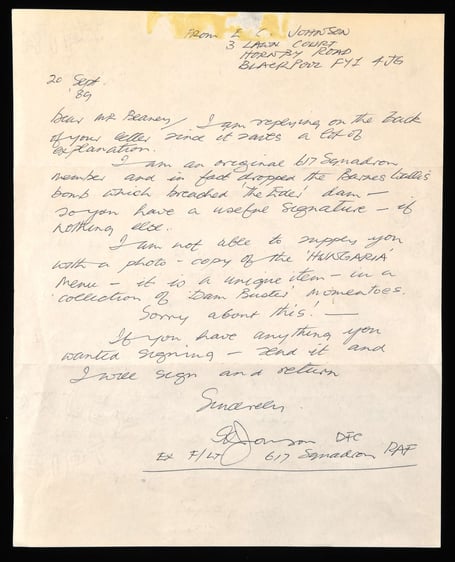 FROM E. C. JOHNSON
3 LAWN COURT
HORNBY ROAD
BLACKPOOL FY1 4JG
20 Sept.
'89
Dear Mr Beaney, I am replying on the back
of your letter since it saves a lot of
explanation.
I am an original 617 Squadron
member and in fact dropped the Barnes Wallis
bomb which breached 'the Eder' dam -
so you have a useful signature - if
nothing else.
I am not able to supply you
with a photo-copy of the 'HUNGARIA'
menu - it is a unique item - in a
collection of 'Dam Buster' momentoes.
Sorry about this! -
If you have anything you
wanted signing - send it and
I will sign and return
Sincerely
Johnson DFC
Ex F/LT 617 Squadron RAF